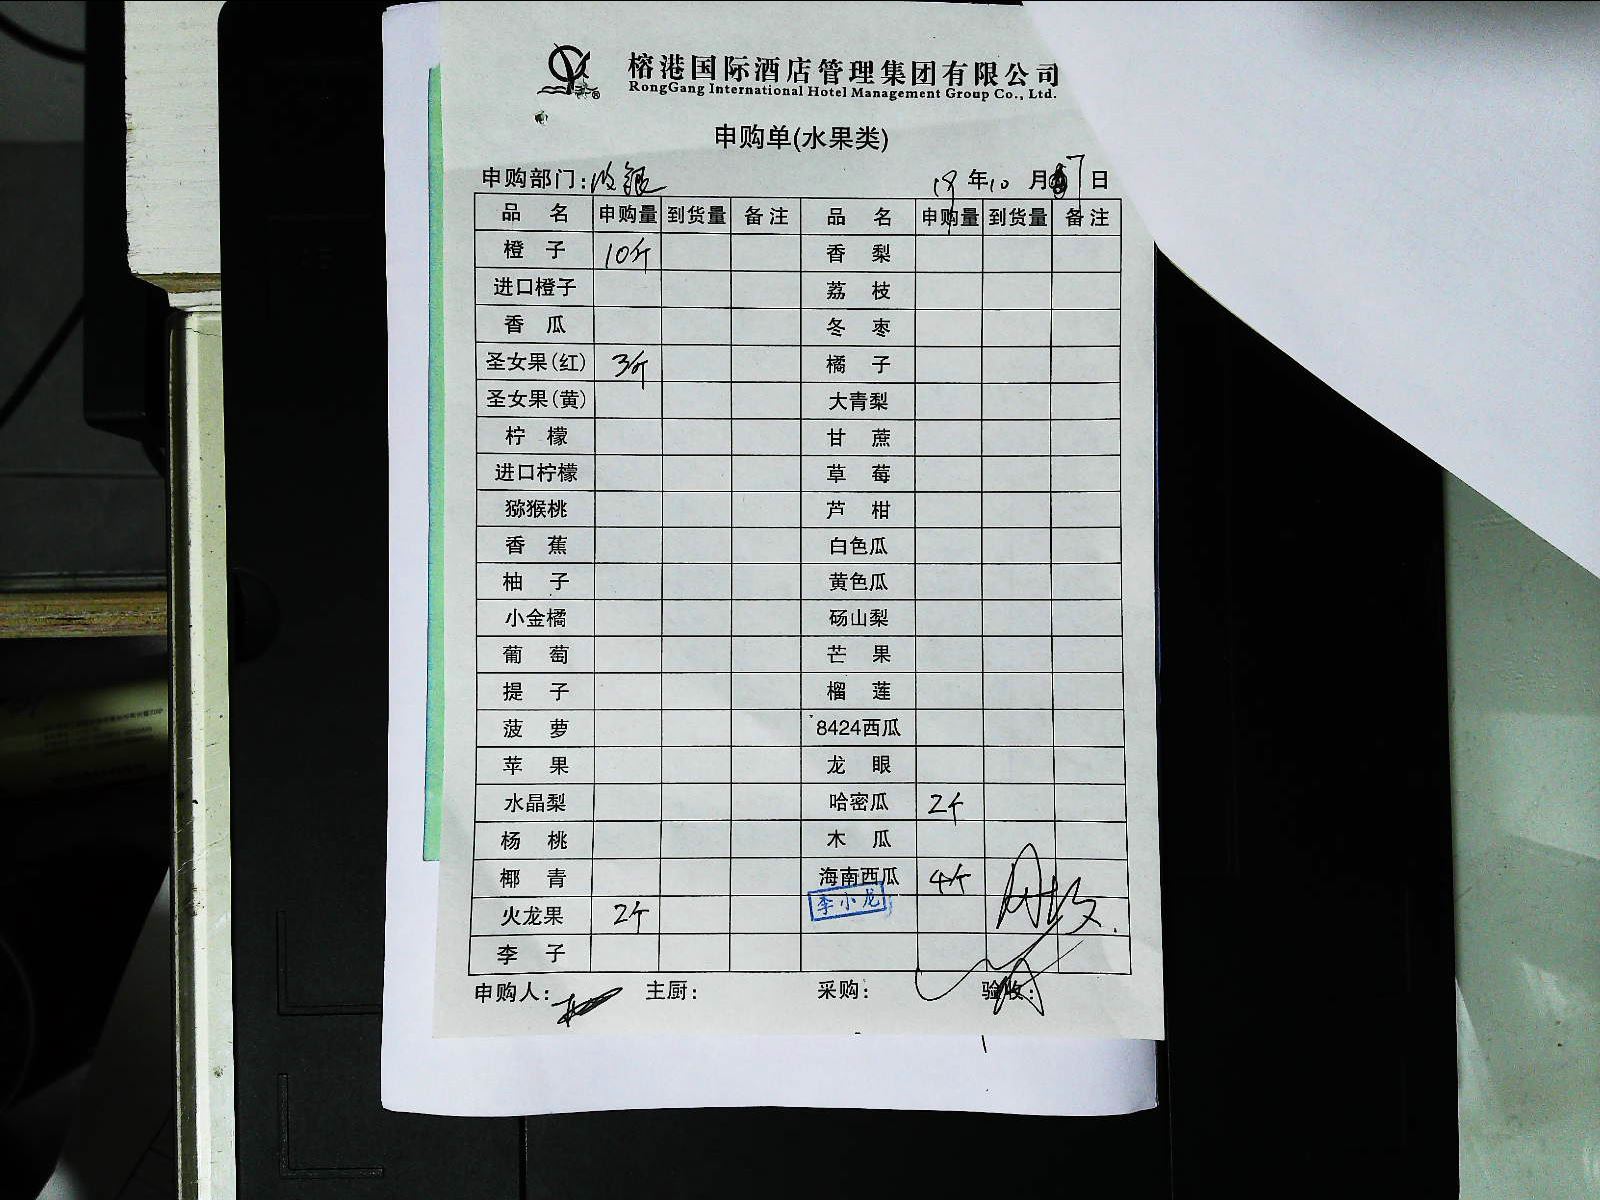 榕港国际酒店管理集团有限公司
RongGang International Hotel Management Group Co., Ltd.
申购单(水果类)
申购部门: 收银 19 年 10 月 7 日
品 名 申购量 到货量 备注 品 名 申购量 到货量 备注
橙 子 10斤 香 梨
进口橙子 荔 枝
香 瓜 冬 枣
圣女果(红) 3斤 橘 子
圣女果(黄) 大青梨
柠 檬 甘 蔗
进口柠檬 草 莓
猕猴桃 芦 柑
香 蕉 白色瓜
柚 子 黄色瓜
小金橘 砀山梨
葡 萄 芒 果
提 子 榴 莲
菠 萝 8424西瓜
苹 果 龙 眼
水晶梨 哈密瓜 2个
杨 桃 木 瓜
椰 青 海南西瓜 4个
火龙果 2个 李小龙
李 子
申购人: 主厨: 采购: 验收: